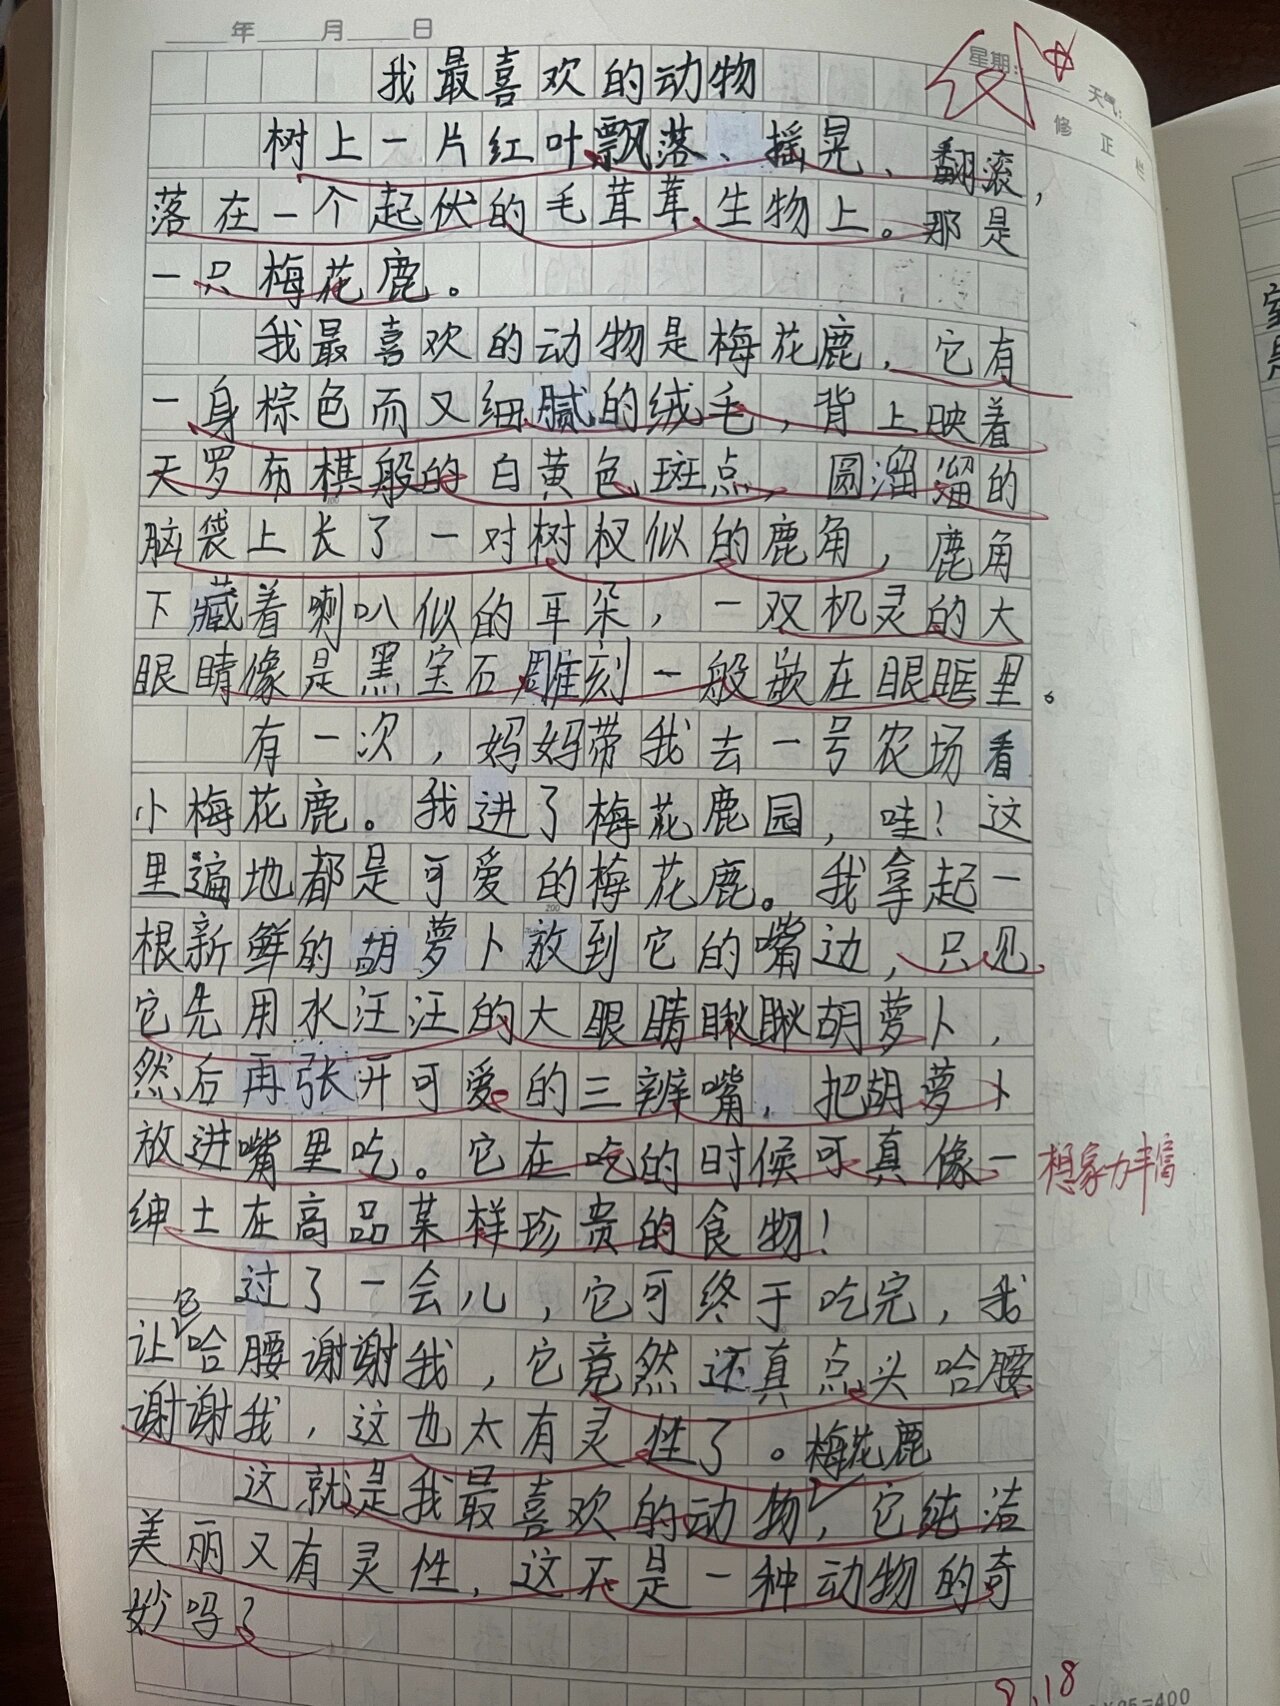 年 月 日
星期: 天气:
修正栏
我最喜欢的动物
树上一片红叶飘落、摇晃、翻滚,
落在一个起伏的毛茸茸生物上。那是
一只梅花鹿。
我最喜欢的动物是梅花鹿,它有
一身棕色而又细腻的绒毛,背上映着
天罗布棋般的白黄色斑点,圆溜溜的
脑袋上长了一对树杈似的鹿角,鹿角
下藏着喇叭似的耳朵,一双机灵的大
眼睛像是黑宝石雕刻一般嵌在眼眶里。
有一次,妈妈带我去一号农场看
小梅花鹿。我进了梅花鹿园,哇!这
里遍地都是可爱的梅花鹿。我拿起一
根新鲜的胡萝卜放到它的嘴边,只见
它先用水汪汪的大眼睛瞅瞅胡萝卜,
然后再张开可爱的三辨嘴,把胡萝卜
放进嘴里吃。它在吃的时候可真像一
想象力丰富
绅士在高品某样珍贵的食物!
过了一会儿,它可终于吃完,我
让它哈腰谢谢我,它竟然还真点头哈腰
谢谢我,这也太有灵性了。
这就是我最喜欢的动物梅花鹿,它纯洁
美丽又有灵性,这不是一种动物的奇
妙吗?
9.18
=400